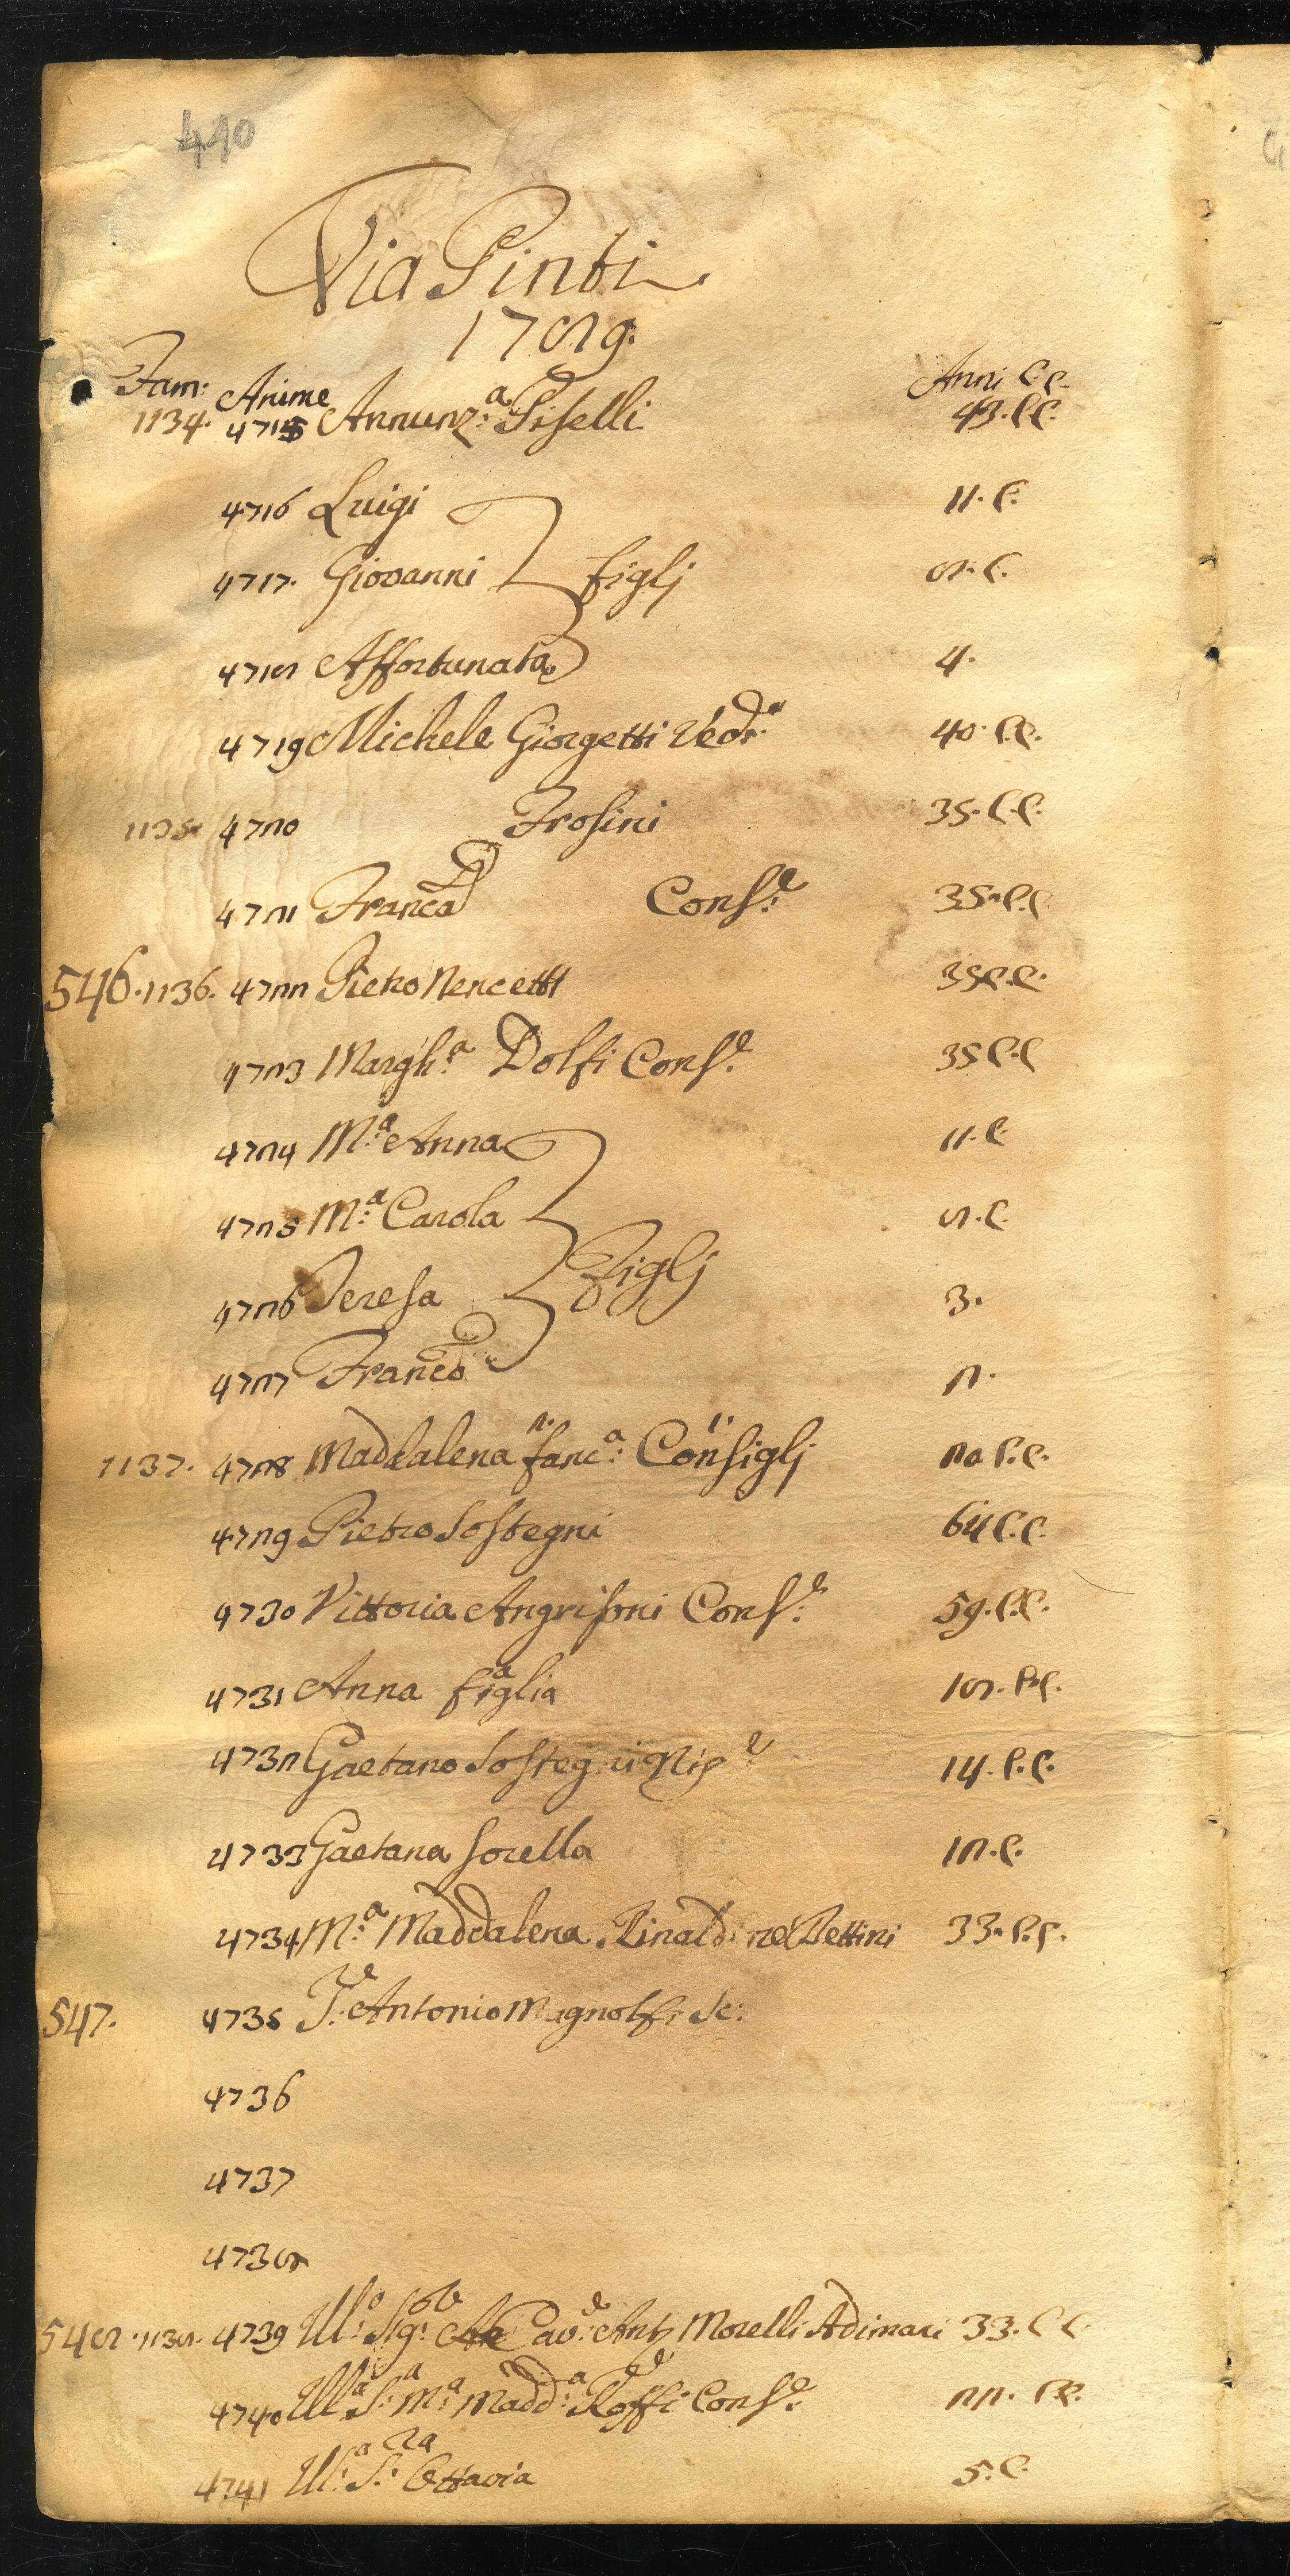 410
Via Pinti
1789.
Fam: Anime Anni C.C.
1134. 4715 Annunz:a Piselli 43. C.C.
4716 Luigi 11. C.
4717. Giovanni figlj 8. C.
4718 Affortunata 4.
4719 Michele Giorgetti Ved:o 40. C.C.
1135. 4720 Frosini 35. C.C.
4721 Franca Cons:e 35. C.C.
546. 1136. 4722 Pietro Nencetti 35 C.C.
4723 Margh:a Dolfi Cons:e 35 C.C
4724 M:a Anna 11. C
4725 M:a Carola 8. C.
Figlj
4726 Teresa 3.
4727 Franco 2.
1137. 4728 Maddalena fanc:a Consiglj 20 C.C.
4729 Pietro Sostegni 64 C.C.
4730 Vittoria Angrisoni Cons:e 59. C.C.
4731 Anna figlia 18. C.C.
4732 Gaetano Sostegni Nip:e 14. C.C.
4733 Gaetana sorella 12. C.
4734 M:a Maddalena Rinaldi ne' Bettini 33. C.C.
547. 4735 Antonio Magnolfi Sc:
4736
4737
4738
548. 1138. 4739 Ill:o Sig: Cav:e Ant: Morelli Adimari 33. C C
4740 Ill:a S:a M:a Madd:a Roffi Cons:e 22. C.C.
4741 Ill:a S:ra Ottavia 5. C.